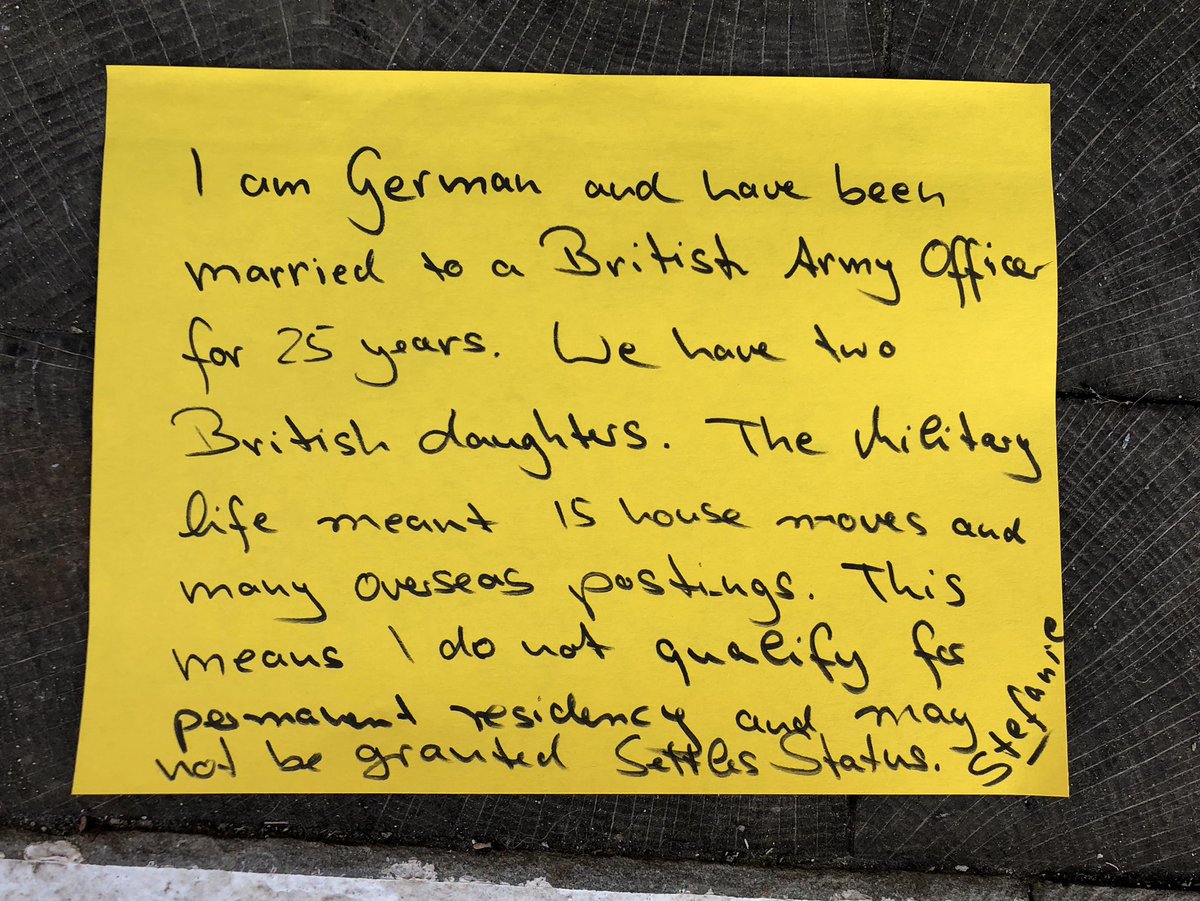 I am German and have been
married to a British Army Officer
for 25 years. We have two
British daughters. The Military
life meant 15 house moves and
many overseas postings. This
means I do not qualify for
permanent residency and may
not be granted Settles Status.
Stefanie